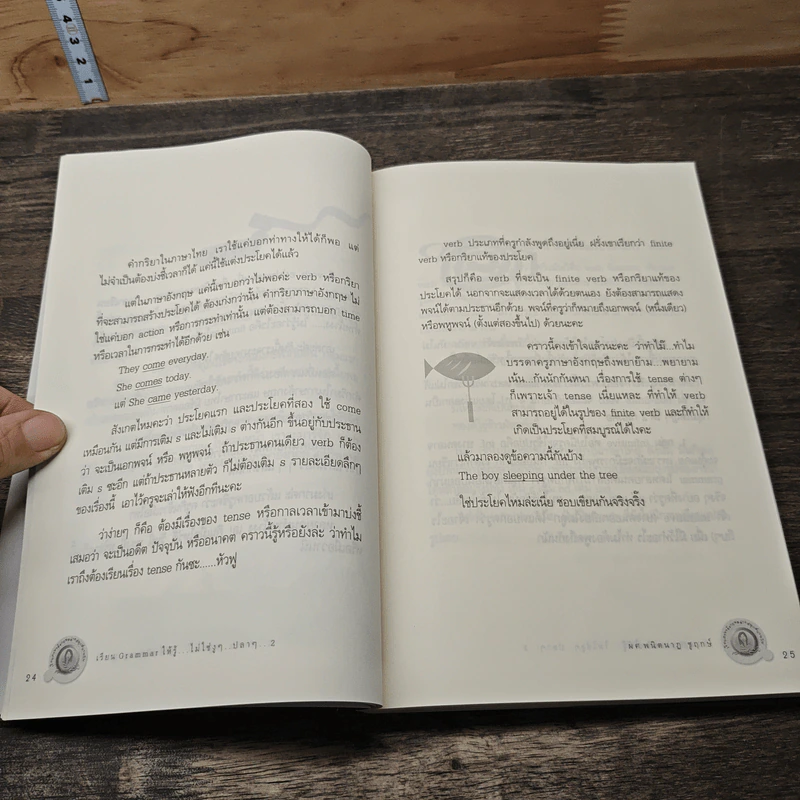 4
3
2
1
คำกริยาในภาษาไทย เราใช้แค่บอกท่าทางให้ได้ก็พอ แต่
ไม่จำเป็นต้องบ่งชี้เวลาก็ได้ แค่นี้ใช้แต่งประโยคได้แล้ว
แต่ในภาษาอังกฤษ แค่นี้เขาบอกว่าไม่พอค่ะ verb หรือกริยา
ที่จะสามารถสร้างประโยคได้ ต้องเก่งกว่านั้น คำกริยาภาษาอังกฤษ ไม่
ใช่แค่บอก action หรือการกระทำเท่านั้น แต่ต้องสามารถบอก time
หรือเวลาในการกระทำได้อีกด้วย เช่น
They come everyday.
She comes today.
แต่ She came yesterday.
สังเกตไหมคะว่า ประโยคแรก และประโยคที่สอง ใช้ come
เหมือนกัน แต่มีการเติม s และไม่เติม s ต่างกันอีก ขึ้นอยู่กับประธาน
ว่า จะเป็นเอกพจน์ หรือ พหูพจน์ ถ้าประธานคนเดียว verb ก็ต้อง
เติม s ซะอีก แต่ถ้าประธานหลายตัว ก็ไม่ต้องเติม s รายละเอียดลึกๆ
ของเรื่องนี้ เอาไว้ครูจะเล่าให้ฟังอีกทีนะคะ
ว่าง่ายๆ ก็คือ ต้องมีเรื่องของ tense หรือกาลเวลาเข้ามาบ่งชี้
เสมอว่า จะเป็นอดีต ปัจจุบัน หรืออนาคต คราวนี้รู้หรือยังล่ะ ว่าทำไม
เราถึงต้องเรียนเรื่อง tense กันซะ......หัวฟู
24
เรียน Grammar ให้รู้...ไม่ใช่งูๆ...ปลาๆ...2
verb ประเภทที่ครูกำลังพูดถึงอยู่เนี่ย ฝรั่งเขาเรียกว่า finite
verb หรือกริยาแท้ของประโยค
สรุปก็คือ verb ที่จะเป็น finite verb หรือกริยาแท้ของ
ประโยคได้ นอกจากจะแสดงเวลาได้ด้วยตนเอง ยังต้องสามารถแสดง
พจน์ได้ตามประธานอีกด้วย พจน์ที่ครูว่าก็หมายถึงเอกพจน์ (หนึ่งเดียว)
หรือพหูพจน์ (ตั้งแต่สองขึ้นไป) ด้วยนะคะ
คราวนี้คงเข้าใจแล้วนะคะ ว่าทำไม๊...ทำไม
บรรดาครูภาษาอังกฤษถึงพย๊าย๊าม...พยายาม
เน้น...กันนักกันหนา เรื่องการใช้ tense ต่างๆ
ก็เพราะเจ้า tense เนี่ยแหละ ที่ทำให้ verb
สามารถอยู่ได้ในรูปของ finite verb และก็ทำให้
เกิดเป็นประโยคที่สมบูรณ์ได้ไงคะ
แล้วมาลองดูข้อความนี้กันบ้าง
The boy sleeping under the tree
ใช่ประโยคไหมล่ะเนี่ย ชอบเขียนกันจริงจริ๊ง
25